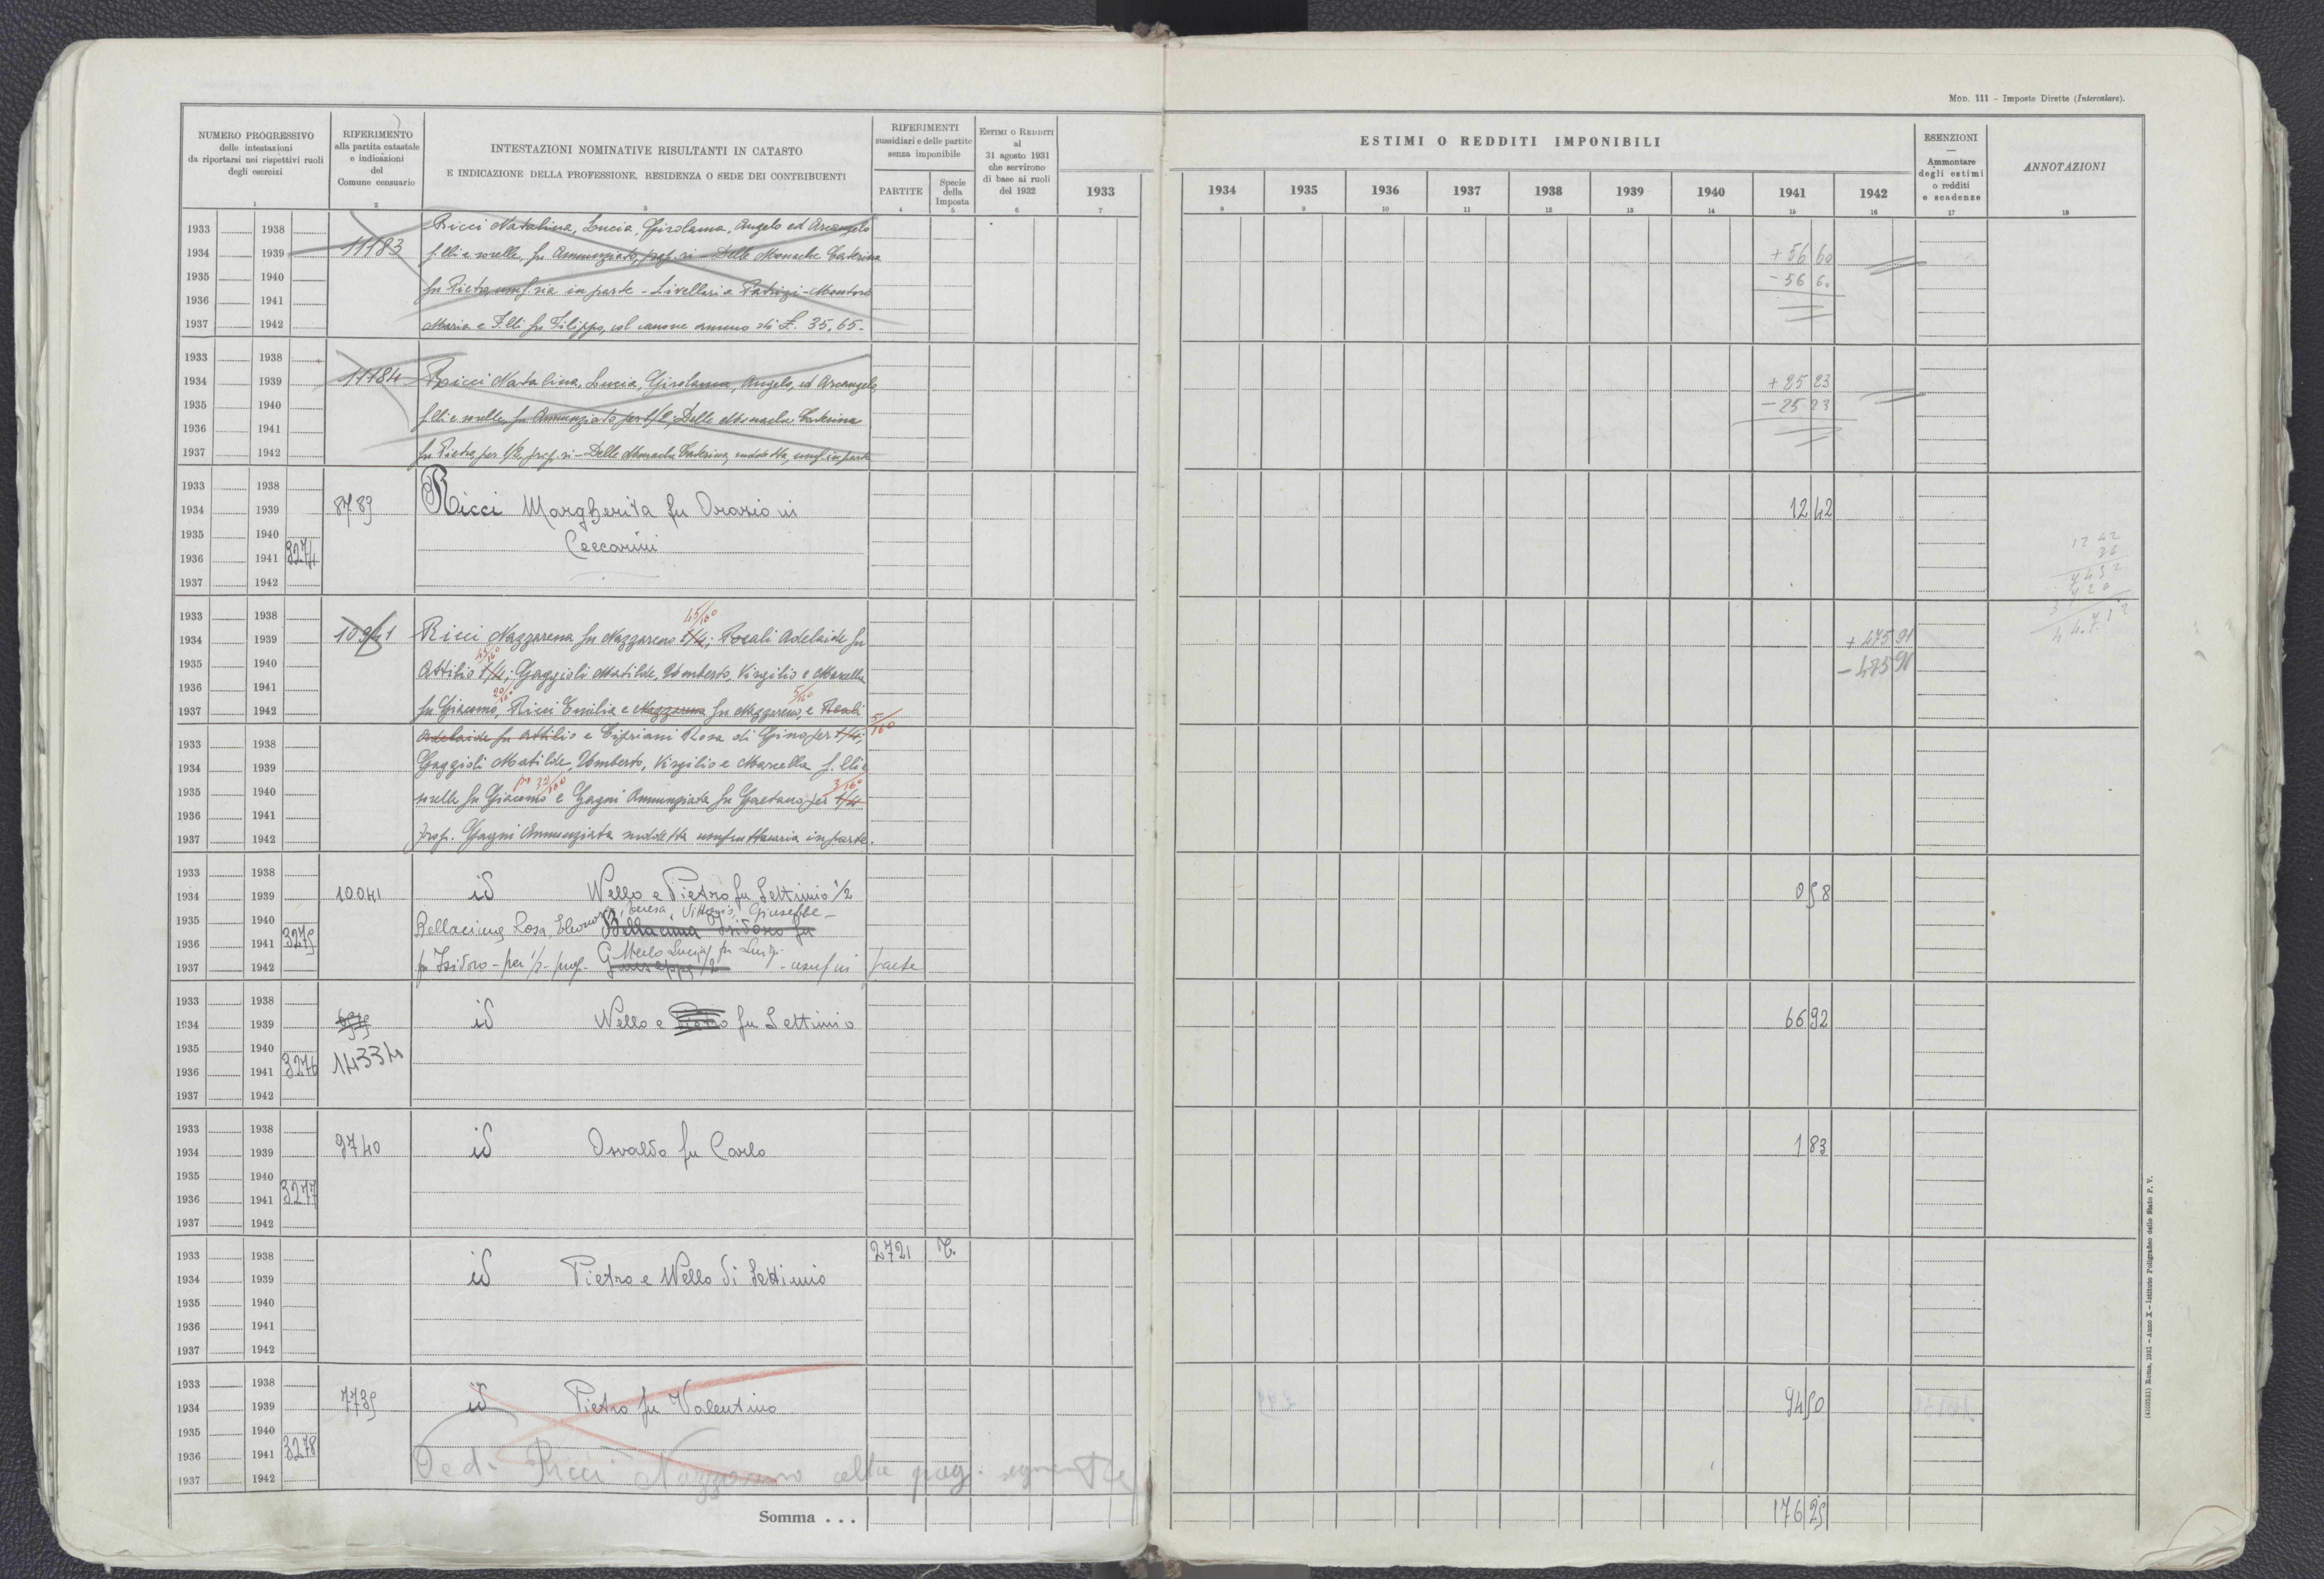 Mod. 111 – Imposte Dirette (Intercalare).
NUMERO PROGRESSIVO
delle intestazioni
da riportarsi nei rispettivi ruoli
degli esercizi
RIFERIMENTO
alla partita catastale
e indicazioni
del
Comune censuario
INTESTAZIONI NOMINATIVE RISULTANTI IN CATASTO
E INDICAZIONE DELLA PROFESSIONE, RESIDENZA O SEDE DEI CONTRIBUENTI
RIFERIMENTI
sussidiari e delle partite
senza imponibile
PARTITE
Specie
della
Imposta
Estimi o Redditi
al
31 agosto 1931
che servirono
di base ai ruoli
del 1932
ESTIMI O REDDITI IMPONIBILI
1933 1934 1935 1936 1937 1938 1939 1940 1941 1942
ESENZIONI
—
Ammontare
degli estimi
o redditi
e scadenze
ANNOTAZIONI
1 2 3 4 5 6 7 8 9 10 11 12 13 14 15 16 17 18
1933 1938 Ricci Natalina, Lucia, Girolama, Angelo ed Arcangelo
1934 1939 11183 f.lli e sorelle fu Annunziato, prop.ri – Delle Monache Caterina + 56 60
1935 1940 fu Pietro, usuf.ria in parte – Livellari a Patrizi-Montoro – 56 60
1936 1941
1937 1942 Maria e F.lli fu Filippo, col canone annuo di £. 35,65.
1933 1938
1934 1939 11184 Ricci Natalina, Lucia, Girolama, Angelo, ed Arcangelo, + 25 23
1935 1940 f.lli e sorelle, fu Annunziato per 1/2; Delle Monache Caterina – 25 23
1936 1941
1937 1942 fu Pietro, per 1/2, prop.ri – Delle Monache Caterina, suddetta, usuf. in parte
1933 1938
1934 1939 8789 Ricci Margherita fu Orazio in 12 42
1935 1940 Ceccarini
1936 1941 3274
1937 1942
12 42
36
1933 1938 45/160
1934 1939 10941 Ricci Nazzarena fu Nazzareno 1/4; Rocali Adelaide fu + 475 91
1935 1940 45/160 Attilio 1/4; Gaggioli Matilde, Umberto, Virgilio e Marcella – 475 91
1936 1941 20/160 5/160
1937 1942 fu Giacomo, Ricci Emilia e Nazzarena fu Nazzareno, e Rocali 5/160
1933 1938 Adelaide fu Attilio e Cipriani Rosa di Gino per 1/4;
1934 1939 Gaggioli Matilde, Umberto, Virgilio e Marcella f.lli e
1935 1940 sorelle fu Giacomo e Gagni Annunziata fu Gaetano per 1/4 3/160
1936 1941
1937 1942 prop. Gagni Annunziata suddetta usufruttuaria in parte.
1933 1938
1934 1939 10041 id Nello e Pietro fu Settimio 1/2 0 58
1935 1940 Teresa, Vittorio, Giuseppe –
1936 1941 3275 Bellacima Rosa, Bellacima Isidoro fu
1937 1942 fu Isidoro – per 1/2 – prop. Merlo Lucia fu Luigi – usuf in parte
Giuseppe 1/2
1933 1938
1934 1939 id Nello e Pietro fu Settimio 66 92
1935 1940 14334
1936 1941 3276
1937 1942
1933 1938
1934 1939 9740 id Osvaldo fu Carlo 1 83
1935 1940
1936 1941 3277
1937 1942
1933 1938 2721 T.
1934 1939 id Pietro e Nello di Settimio
1935 1940
1936 1941
1937 1942
1933 1938
1934 1939 7739 id Pietro fu Valentino 94 50
1935 1940
1936 1941 3278
1937 1942 Vedi Ricci Nazzareno alla pag. seguente
Somma . . . 176 25
(4100331) Roma, 1931 - Anno X - Istituto Poligrafico dello Stato P. V.